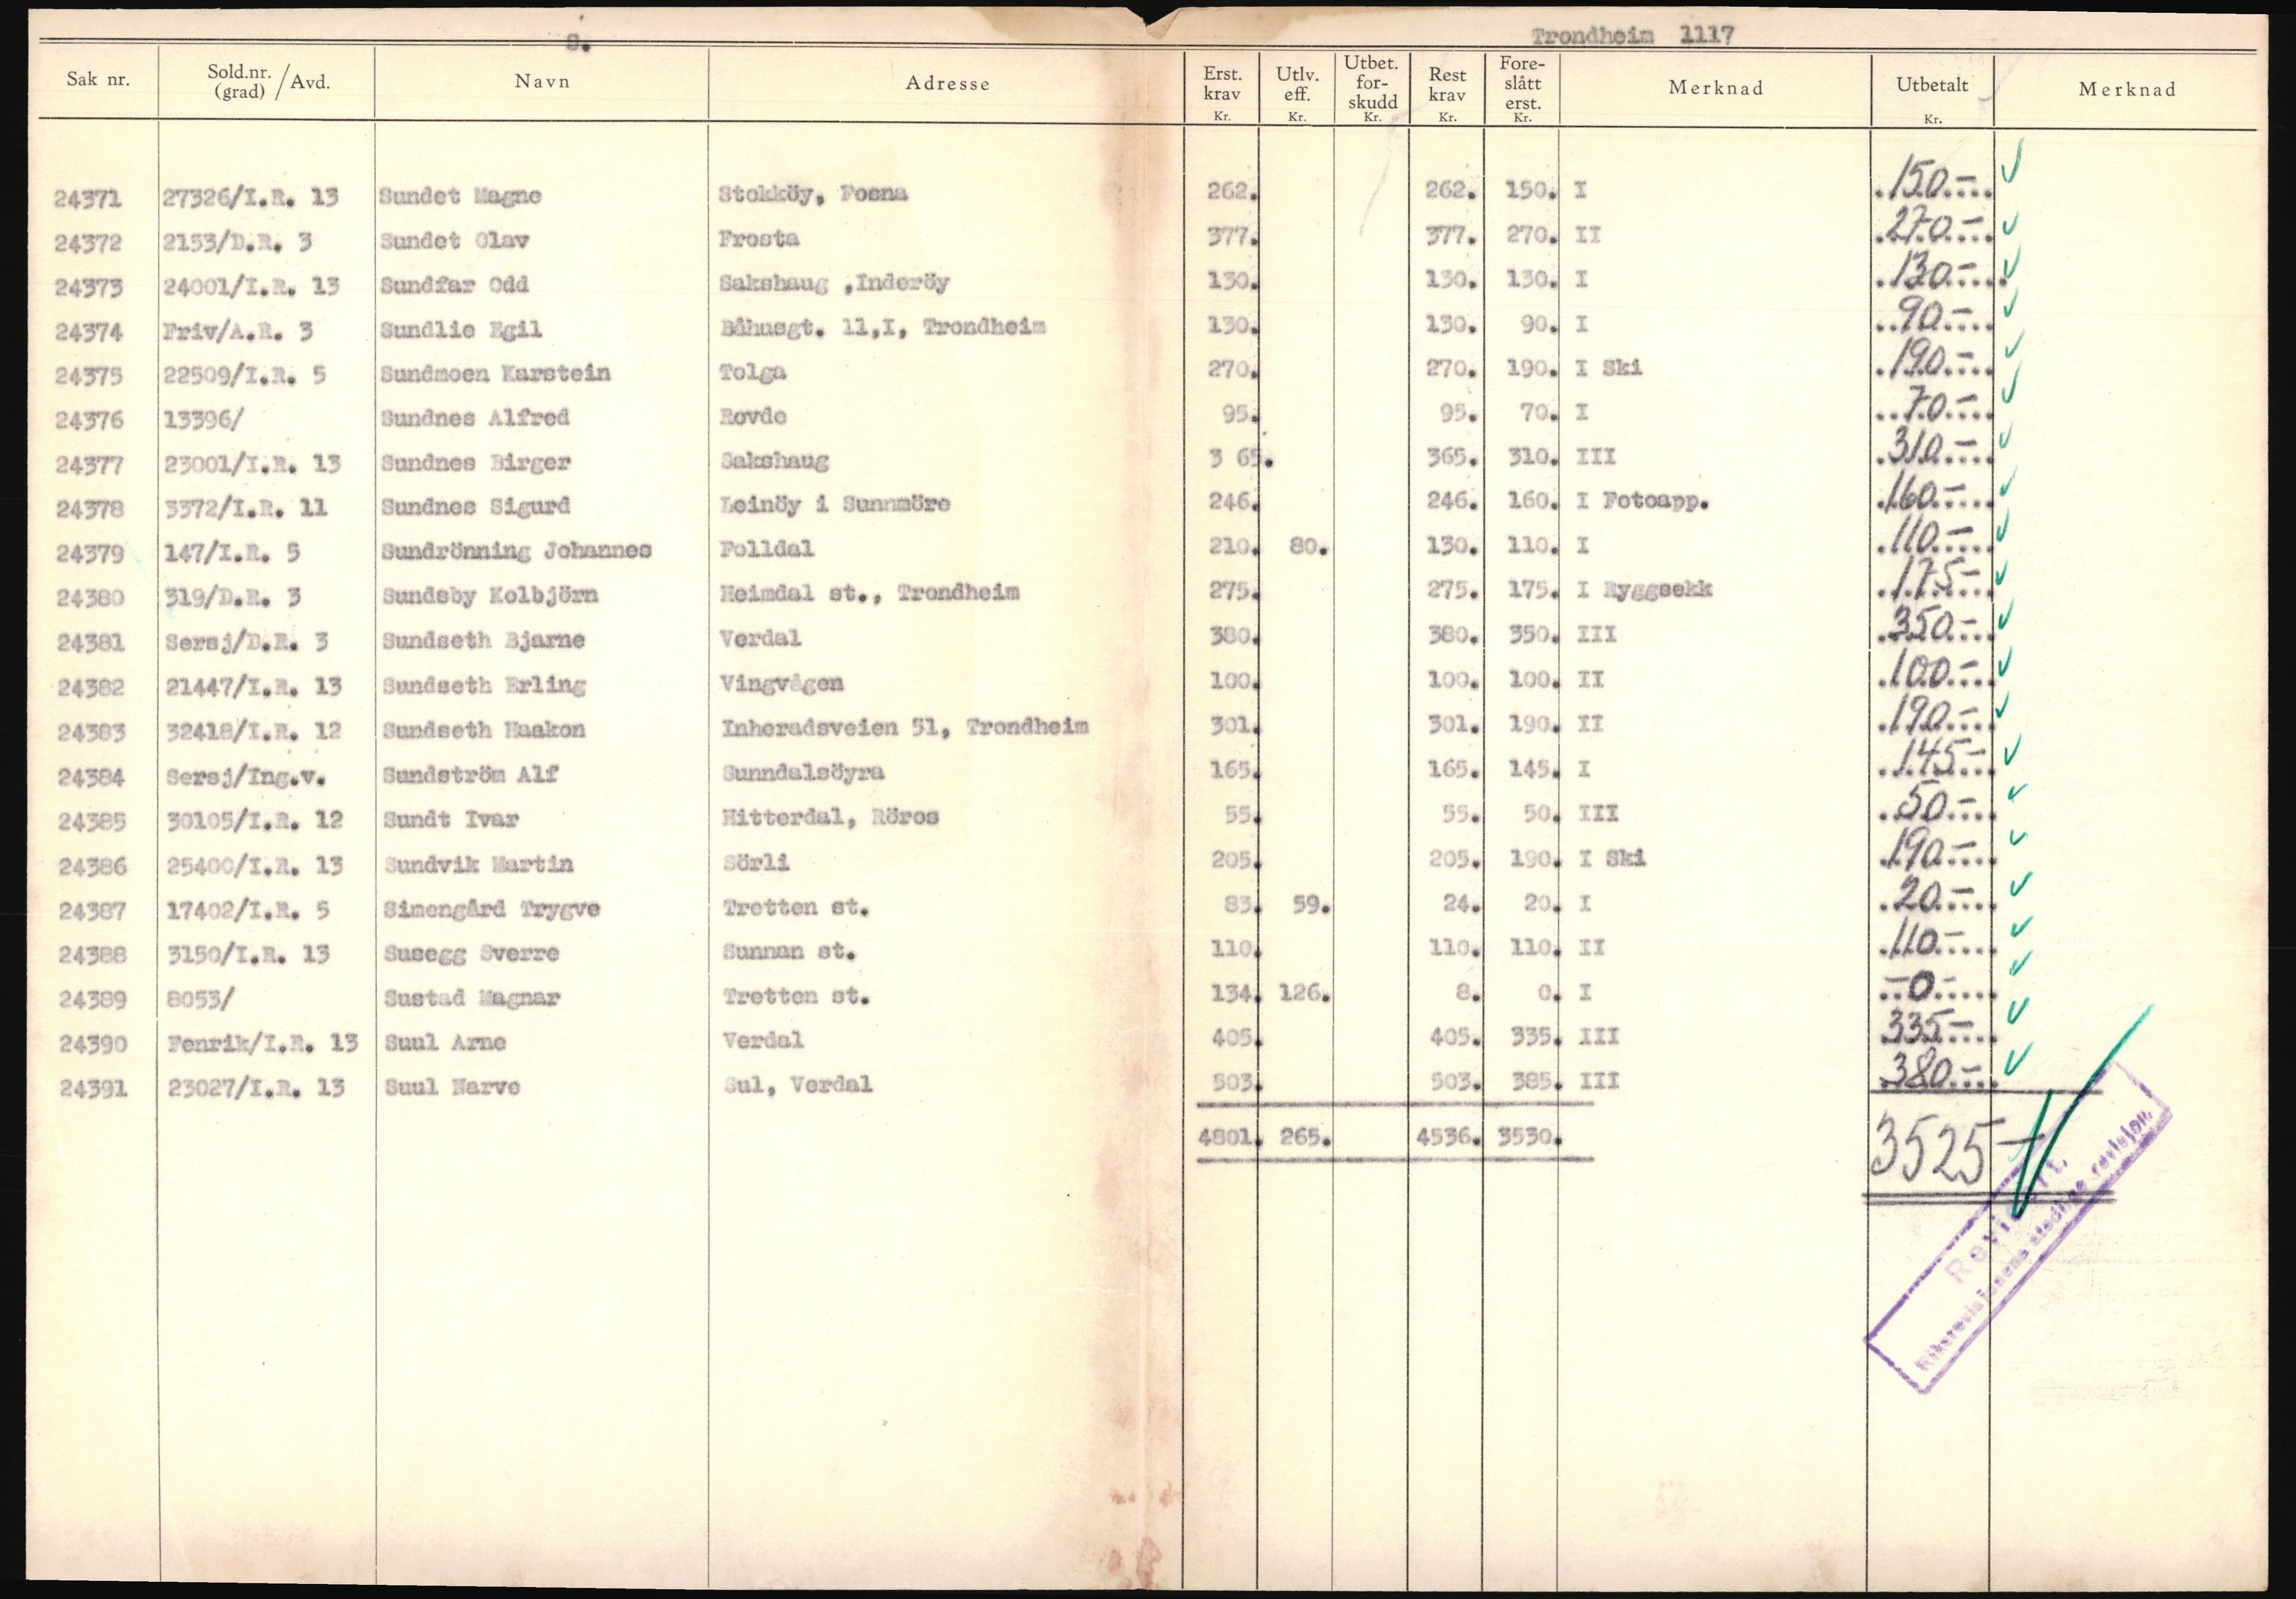 S. Trondheim 1117
Sak nr. Sold.nr. (grad) / Avd. Navn Adresse Erst. krav Kr. Utlv. eff. Kr. Utbet. for- skudd Kr. Rest krav Kr. Fore- slått erst. Kr. Merknad Utbetalt Kr. Merknad
24371 27326/I.R. 13 Sundet Magne Stokköy, Fosna 262. 262. 150. I 150.-
24372 2153/D.R. 3 Sundet Olav Frosta 377. 377. 270. II 270.-
24373 24001/I.R. 13 Sundfar Odd Sakshaug ,Inderöy 130. 130. 130. I 130.-
24374 Friv/A.R. 3 Sundlie Egil Båhusgt. 11,I, Trondheim 130. 130. 90. I 90.-
24375 22509/I.R. 5 Sundmoen Karstein Tolga 270. 270. 190. I Ski 190.-
24376 13396/ Sundnes Alfred Rovde 95. 95. 70. I 70.-
24377 23001/I.R. 13 Sundnes Birger Sakshaug 3 65. 365. 310. III 310.-
24378 3372/I.R. 11 Sundnes Sigurd Leinöy i Sunnmöre 246. 246. 160. I Fotoapp. 160.-
24379 147/I.R. 5 Sundrönning Johannes Folldal 210. 80. 130. 110. I 110.-
24380 319/D.R. 3 Sundsby Kolbjörn Heimdal st., Trondheim 275. 275. 175. I Ryggsekk 175-
24381 Sersj/D.R. 3 Sundseth Bjarne Verdal 380. 380. 350. III 350.-
24382 21447/I.R. 13 Sundseth Erling Vingvågen 100. 100. 100. II 100.-
24383 32418/I.R. 12 Sundseth Haakon Inheradsveien 51, Trondheim 301. 301. 190. II 190.-
24384 Sersj/Ing.v. Sundström Alf Sunndalsöyra 165. 165. 145. I 145-
24385 30105/I.R. 12 Sundt Ivar Hitterdal, Röros 55. 55. 50. III 50.-
24386 25400/I.R. 13 Sundvik Martin Sörli 205. 205. 190. I Ski 190.-
24387 17402/I.R. 5 Simengård Trygve Tretten st. 83. 59. 24. 20. I 20.-
24388 3150/I.R. 13 Susegg Sverre Sunnan st. 110. 110. 110. II 110.-
24389 8053/ Sustad Magnar Tretten st. 134. 126. 8. 0. I -0-
24390 Fenrik/I.R. 13 Suul Arne Verdal 405. 405. 335. III 335.-
24391 23027/I.R. 13 Suul Narve Sul, Verdal 503. 503. 385. III 380.-
4801. 265. 4536. 3530. 3525-
Riksrevisjonens stedlige revisjon.